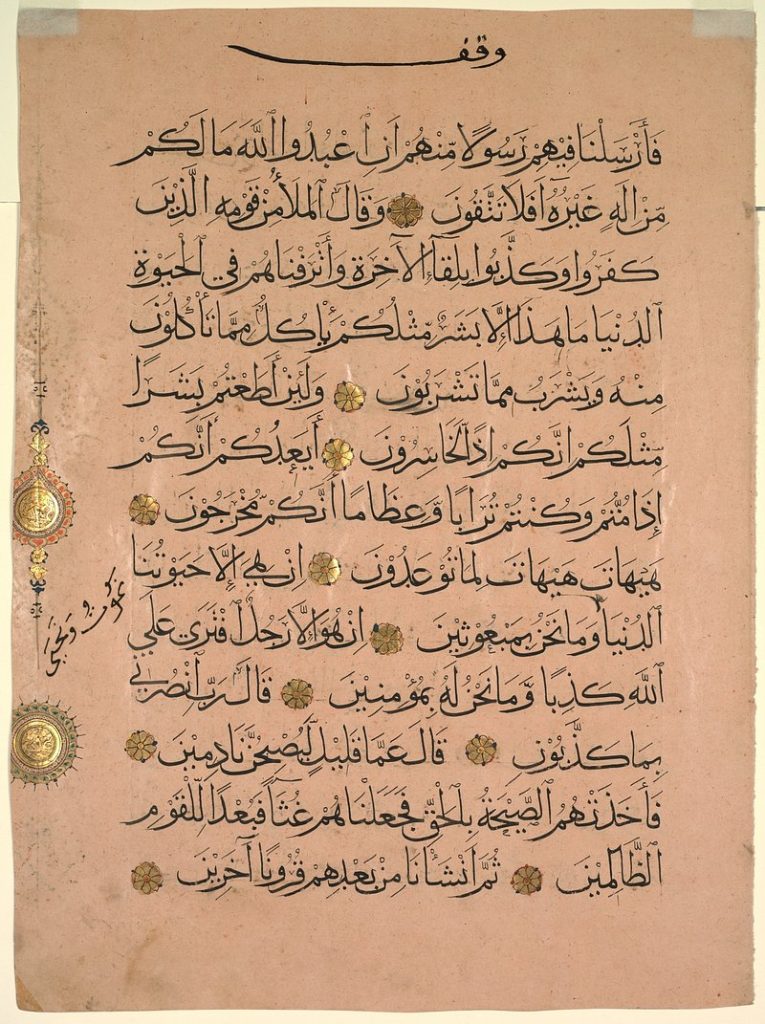 وقف
فَأَرْسَلْنَا فِيهِمْ رَسُولًا مِّنْهُمْ اَنِ اعْبُدُوا اللَّهَ مَا لَكُمْ
مِّنْ اِلَهٍ غَيْرُهُ اَفَلَا تَتَّقُونَ وَقَالَ الْمَلَأُ مِنْ قَوْمِهِ الَّذِينَ
كَفَرُوا وَكَذَّبُوا بِلِقَاءِ الْآخِرَةِ وَأَتْرَفْنَاهُمْ فِي الْحَيَوةِ
الدُّنْيَا مَا هَذَا اِلَّا بَشَرٌ مِّثْلُكُمْ يَأْكُلُ مِمَّا تَأْكُلُونَ
مِنْهُ وَيَشْرَبُ مِمَّا تَشْرَبُونَ وَلَئِنْ أَطَعْتُمْ بَشَرًا
مِّثْلَكُمْ اِنَّكُمْ اِذًا لَّخَاسِرُونَ أَيَعِدُكُمْ أَنَّكُمْ
إِذَا مُتُّمْ وَكُنْتُمْ تُرَابًا وَّعِظَامًا أَنَّكُمْ مُّخْرَجُونَ
هَيْهَاتَ هَيْهَاتَ لِمَا تُوعَدُونَ اِنْ هِيَ إِلَّا حَيَوتُنَا
الدُّنْيَا وَمَا نَحْنُ بِمَبْعُوثِينَ اِنْ هُوَ اِلَّا رَجُلٌ افْتَرَى عَلَى
نموت ونحيى
اللَّهِ كَذِبًا وَّمَا نَحْنُ لَهُ بِمُؤْمِنِينَ قَالَ رَبِّ انْصُرْنِي
بِمَا كَذَّبُونِ قَالَ عَمَّا قَلِيلٍ لَّيُصْبِحُنَّ نَادِمِينَ
فَأَخَذَتْهُمُ الصَّيْحَةُ بِالْحَقِّ فَجَعَلْنَاهُمْ غُثَاءً فَبُعْدًا لِّلْقَوْمِ
الظَّالِمِينَ ثُمَّ اَنْشَأْنَا مِنْ بَعْدِهِمْ قُرُونًا آخَرِينَ